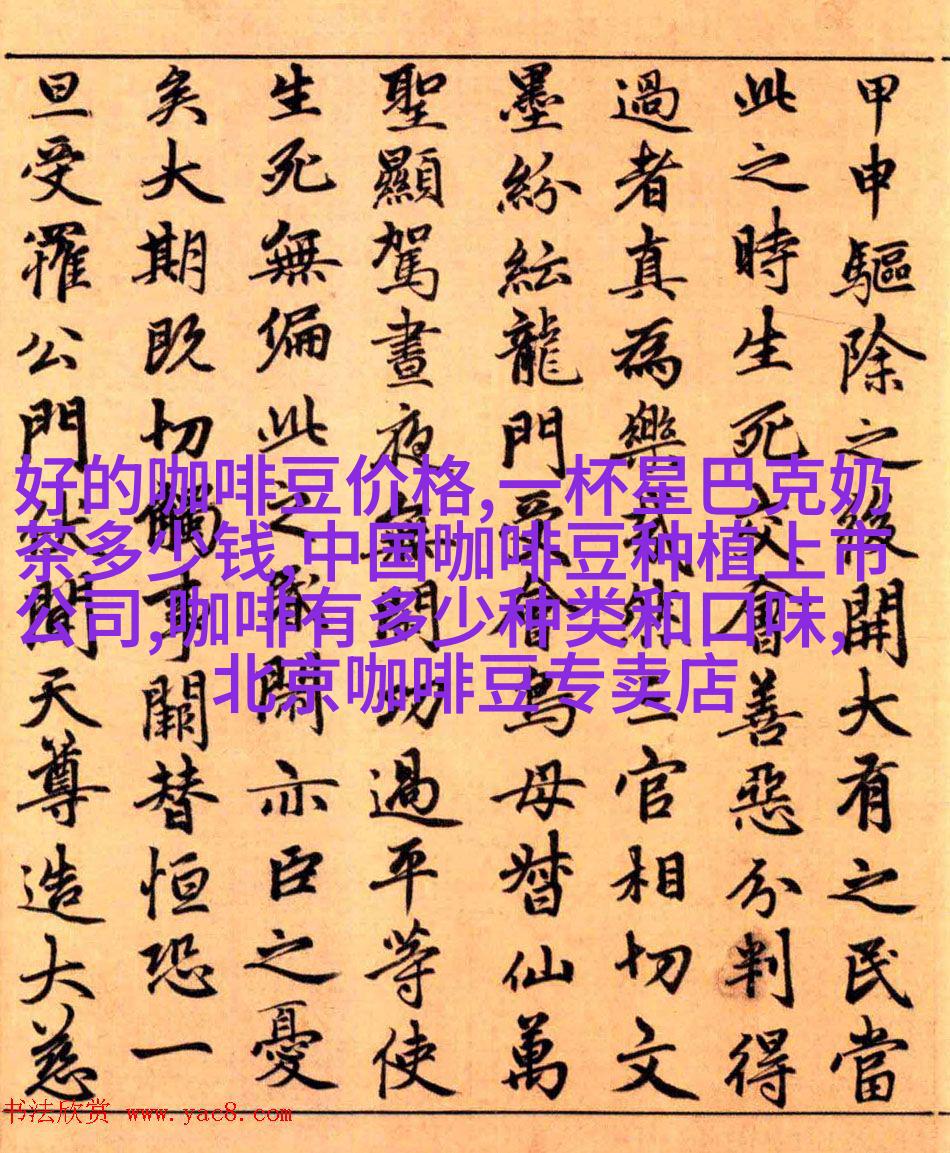 甲申驅除之後開大有之民當
此之時生死交會善惡分判得
過者真為樂三官相切文
墨紛紜龍門受會鳥母督仙萬
聖顯駕晝夜門功過平等使
生死無偏此之開亦臣之憂
矣大期既切觸事闕替恒恐一
旦受罹公門伏聞天尊造大慈
好的咖啡豆价格,一杯星巴克奶
茶多少钱,中国咖啡豆种植上市
公司,咖啡有多少种类和口味,
北京咖啡豆专卖店
书法欣赏 www.yac8.com